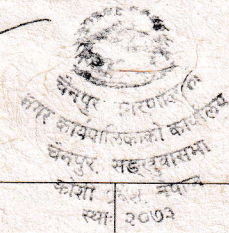 चैनपुर
नगर कार्यपालिकाको कार्यालय
चैनपुर, सङखुवासभा
कोशी प्रदेश, नेपाल
स्था. २०७३